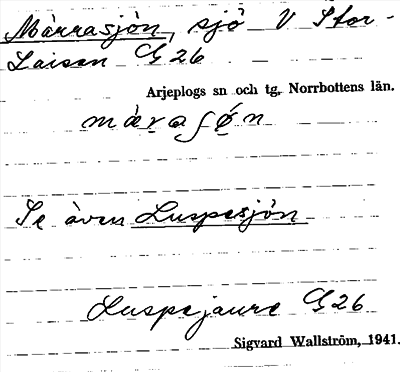 Màrrasjön, sjö V Stor-
Laisan G 26
Arjeplogs sn och tg, Norrbottens län.
Se även Luspesjön
Luspejaure G 26
Sigvard Wallström, 1941.